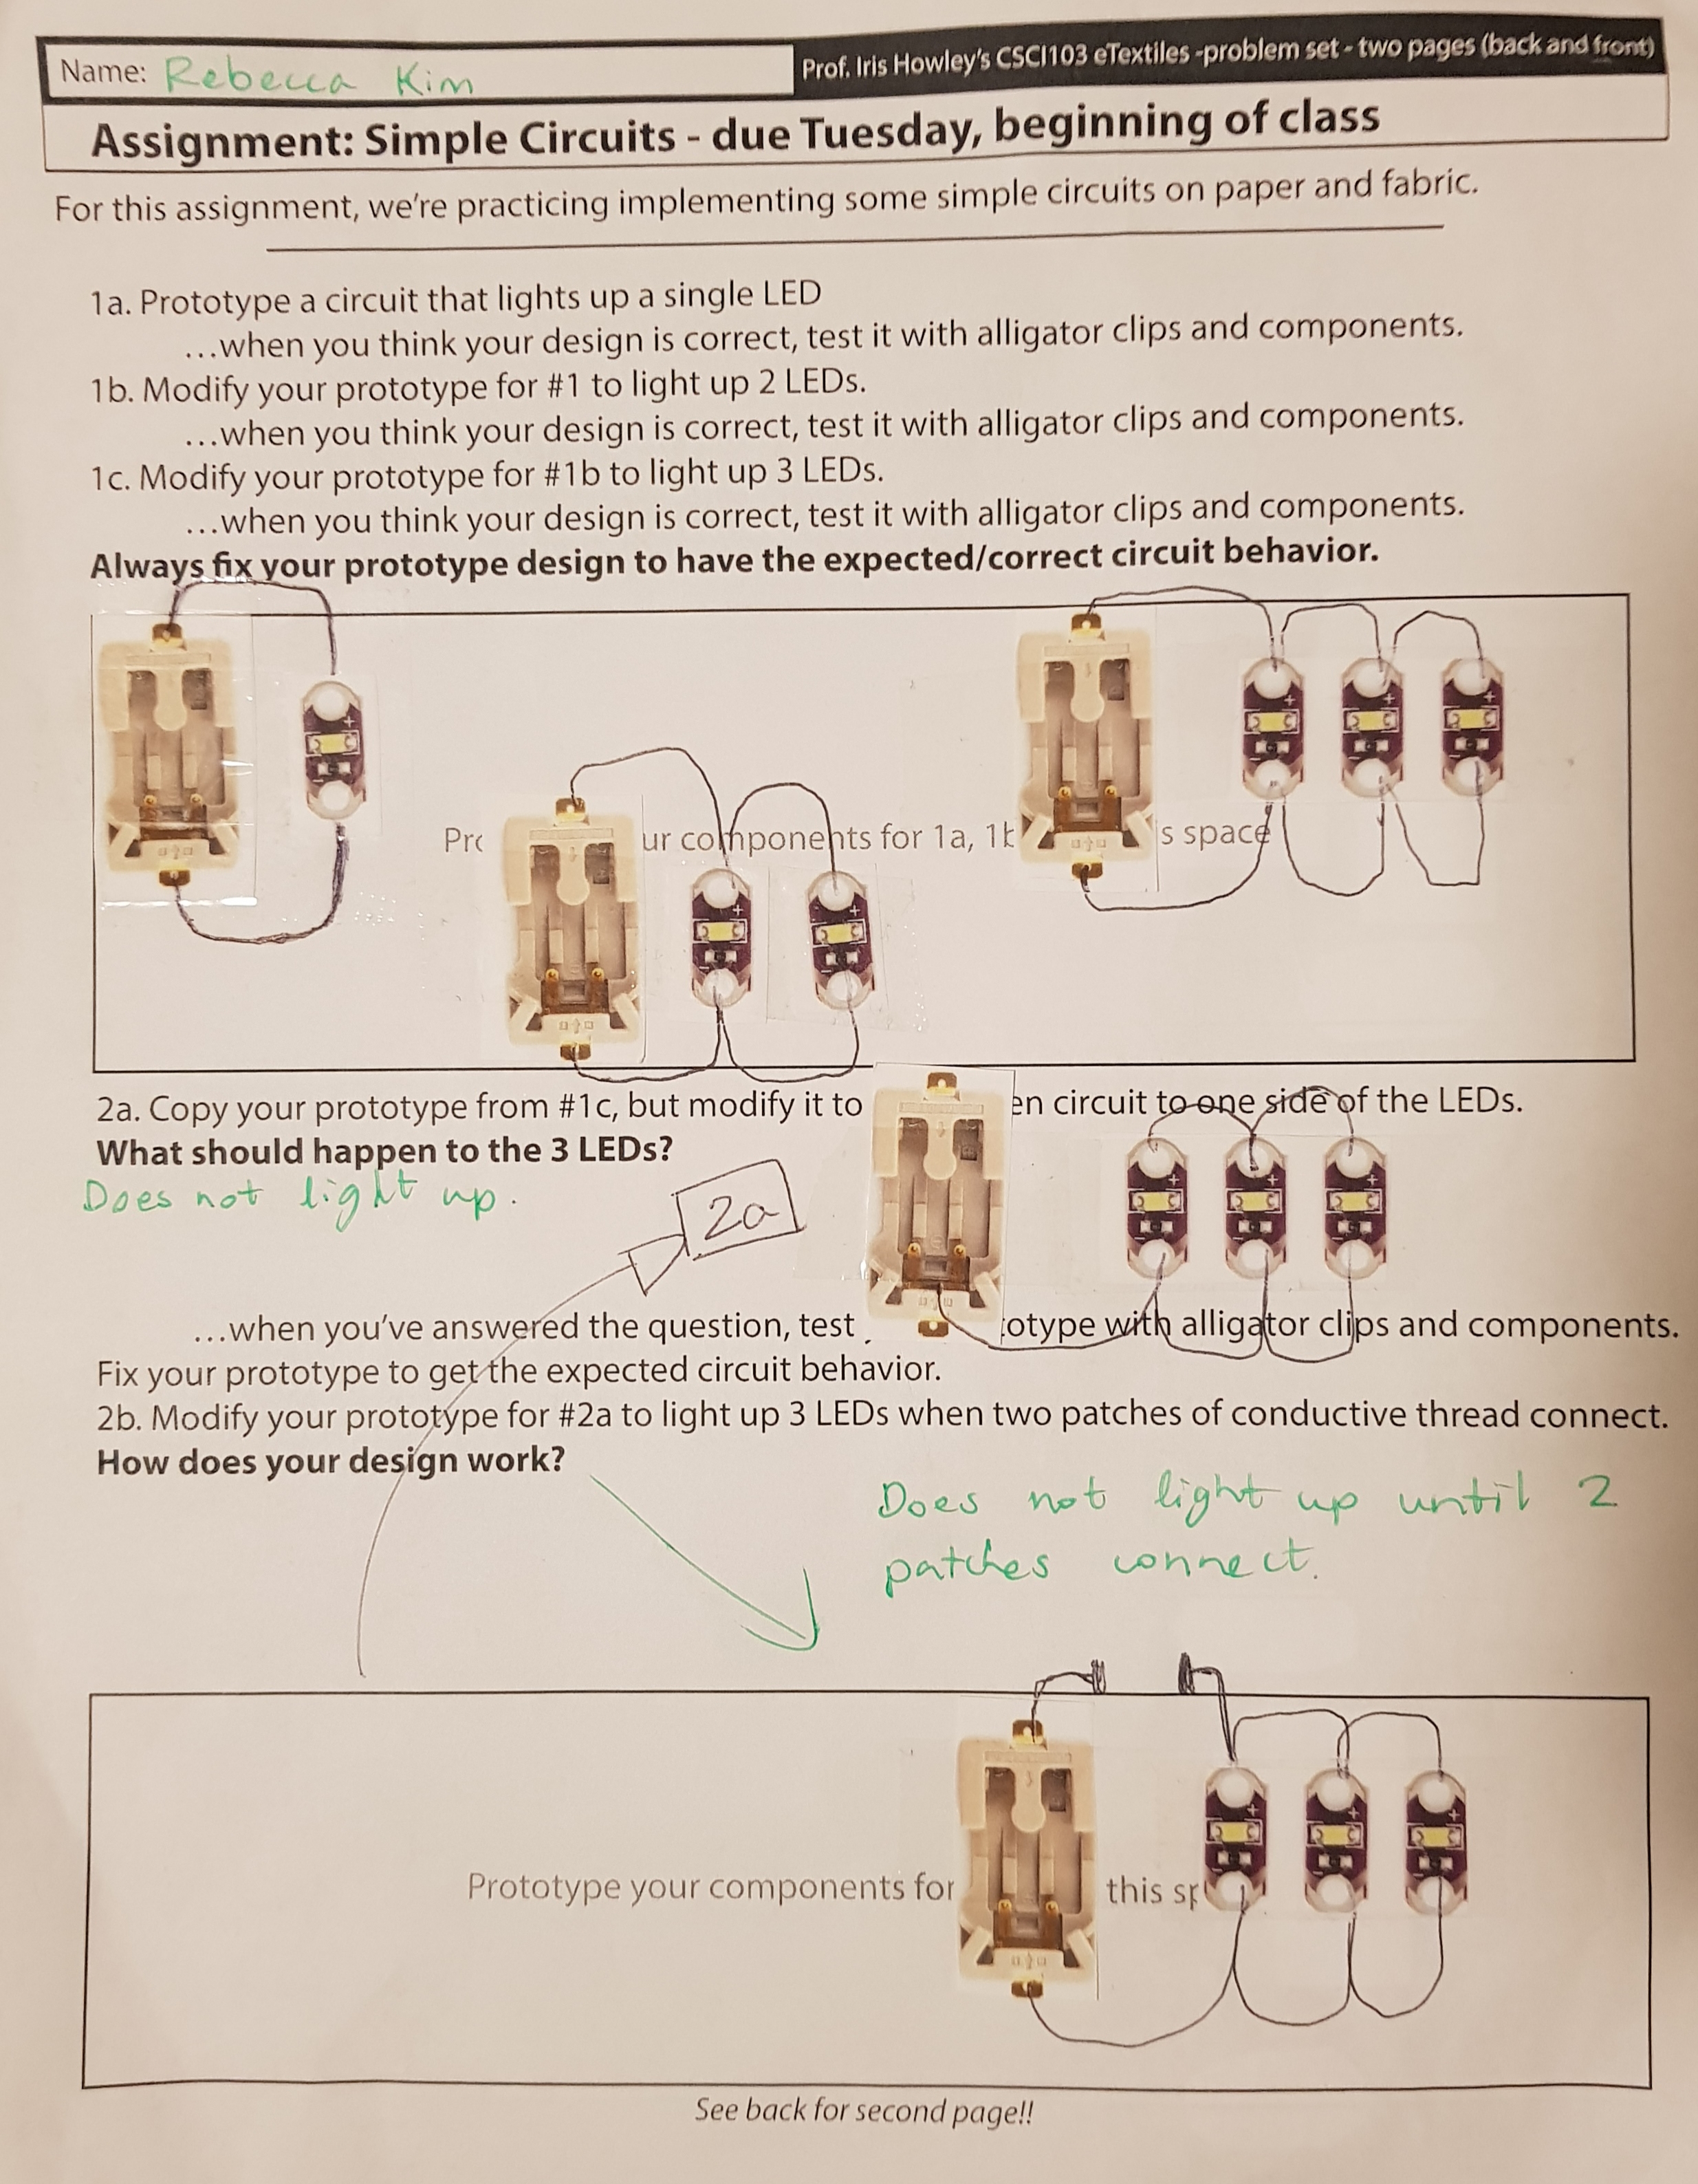 Name: Rebecca Kim
Prof. Iris Howley's CSCI103 eTextiles -problem set - two pages (back and front)
Assignment: Simple Circuits - due Tuesday, beginning of class
For this assignment, we're practicing implementing some simple circuits on paper and fabric.
1a. Prototype a circuit that lights up a single LED
...when you think your design is correct, test it with alligator clips and components.
1b. Modify your prototype for #1 to light up 2 LEDs.
...when you think your design is correct, test it with alligator clips and components.
1c. Modify your prototype for #1b to light up 3 LEDs.
...when you think your design is correct, test it with alligator clips and components.
Always fix your prototype design to have the expected/correct circuit behavior.
ur components for 1a, s space
2a. Copy your prototype from #1c, but modify it to en circuit to one side of the LEDs.
What should happen to the 3 LEDs?
Does not light up.
2a
...when you've answered the question, test otype with alligator clips and components.
Fix your prototype to get the expected circuit behavior.
2b. Modify your prototype for #2a to light up 3 LEDs when two patches of conductive thread connect.
How does your design work?
Does not light up until 2
patches connect.
Prototype your components for this sp
See back for second page!!